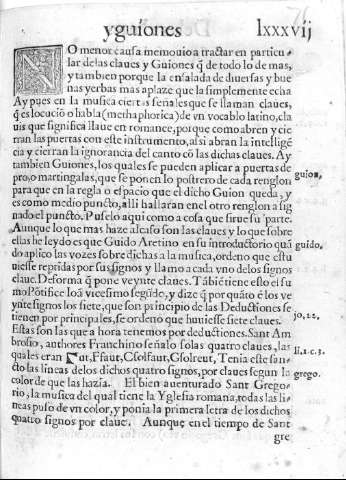 yguiones lxxxvij
NO menor causa me mouio a tractar en particu-
lar delas claues y Guiones q̃ de todo lo de mas,
y tambien porque la ensalada de diuersas y bue
nas yerbas mas aplaze que la simplemente echa
Ay pues en la musica ciertas señales que se llaman claues,
q̃ es locucio o habla (methaphorica) de vn vocablo latino, cla
uis que significa llaue en romance, porque como abren y cie
rran las puertas con este instrumento, assi abran la intelligẽ
cia y cierran la ignorancia del canto cõ las dichas claues. Ay
tambien Guiones, los quales se pueden aplicar a puertas de
pro, o martingalas, que se ponen lo postrero de cada renglon
guion,
para que en la regla o espacio que el dicho Guion queda, y
es como medio puncto, alli hallaran en el otro renglon a sig
nado el puncto. Puselo aqui como a cosa que sirue su parte.
Aunque lo que mas haze al caso son las claues y lo que sobre
ellas he leydo es que Guido Aretino en su introductorio quã
guido,
do aplico las vozes sobre dichas a la musica, ordeno que estu
uiesse reptidas por sus signos y llamo a cada vno delos signos
claue. De forma q̃ pone veynte claues. Tãbiẽ tiene esto el su
mo Põtifice Ioã vicesimo segũdo, y dize q̃ por quãto ẽ los ve
ynte signos los siete, que son principio de las Deductiones se
jo, 22,
tienen por principales, se ordeno que huuiesse siete claues.
Estas son las que a hora tenemos por deductiones. Sant Am
brosio, authores Franchino señalo solas quatro claues, las
li. 1. c. 3.
quales eran Γut, Ffaut, Csolfaut, Gsolreut, Tenia este san-
cto las lineas de los dichos quatro signos, por claues segun la
grego.
color de que las hazia. El bien auenturado Sant Grego-
rio, la musica del qual tiene la Yglesia romana, todas las li-
neas puso de vn color, y ponia la primera letra de los dichos
quatro signos por claue. Aunque en el tiempo de Sant
gre